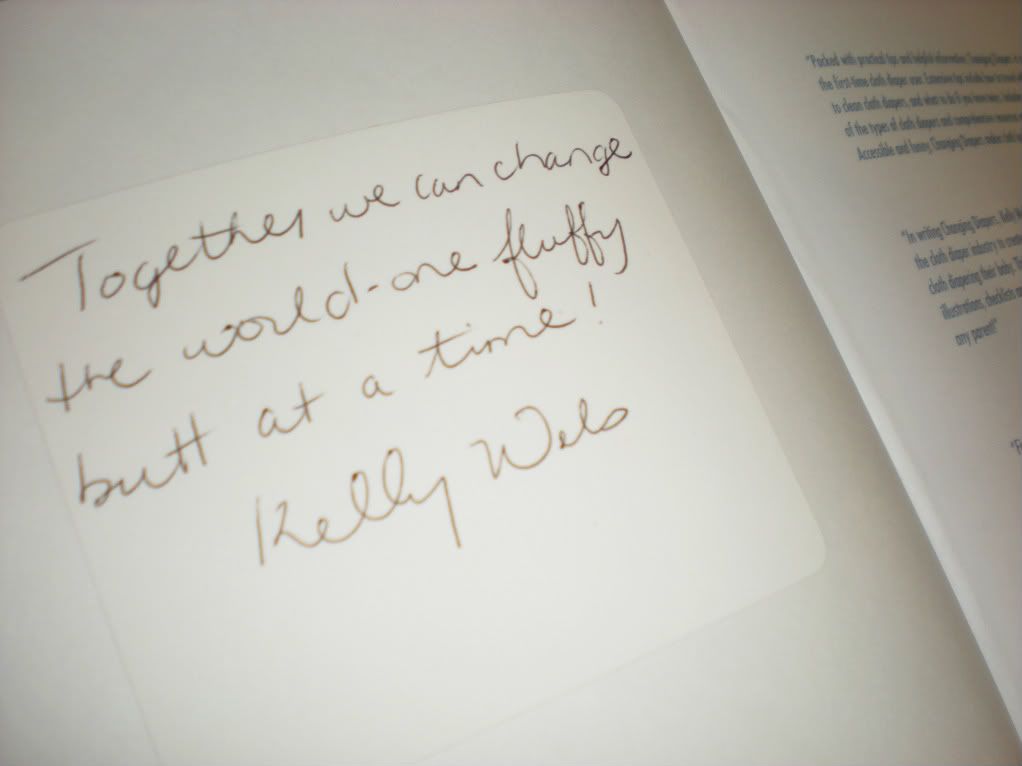 Together we can change
the world-one fluffy
butt at a time!
Kelly Wels
"Packed with practical tips and helpful information, Changing Diapers is
the first-time cloth diaper user. Extensive tips include how to
to clean cloth diapers, and what to do if you
of the types of cloth diapers and comprehensive
Accessible and funny, Changing Diapers makes cloth
"In writing Changing Diapers, Kelly
the cloth diaper industry to create
cloth diapering their baby.
illustrations, checklists
any parent!"